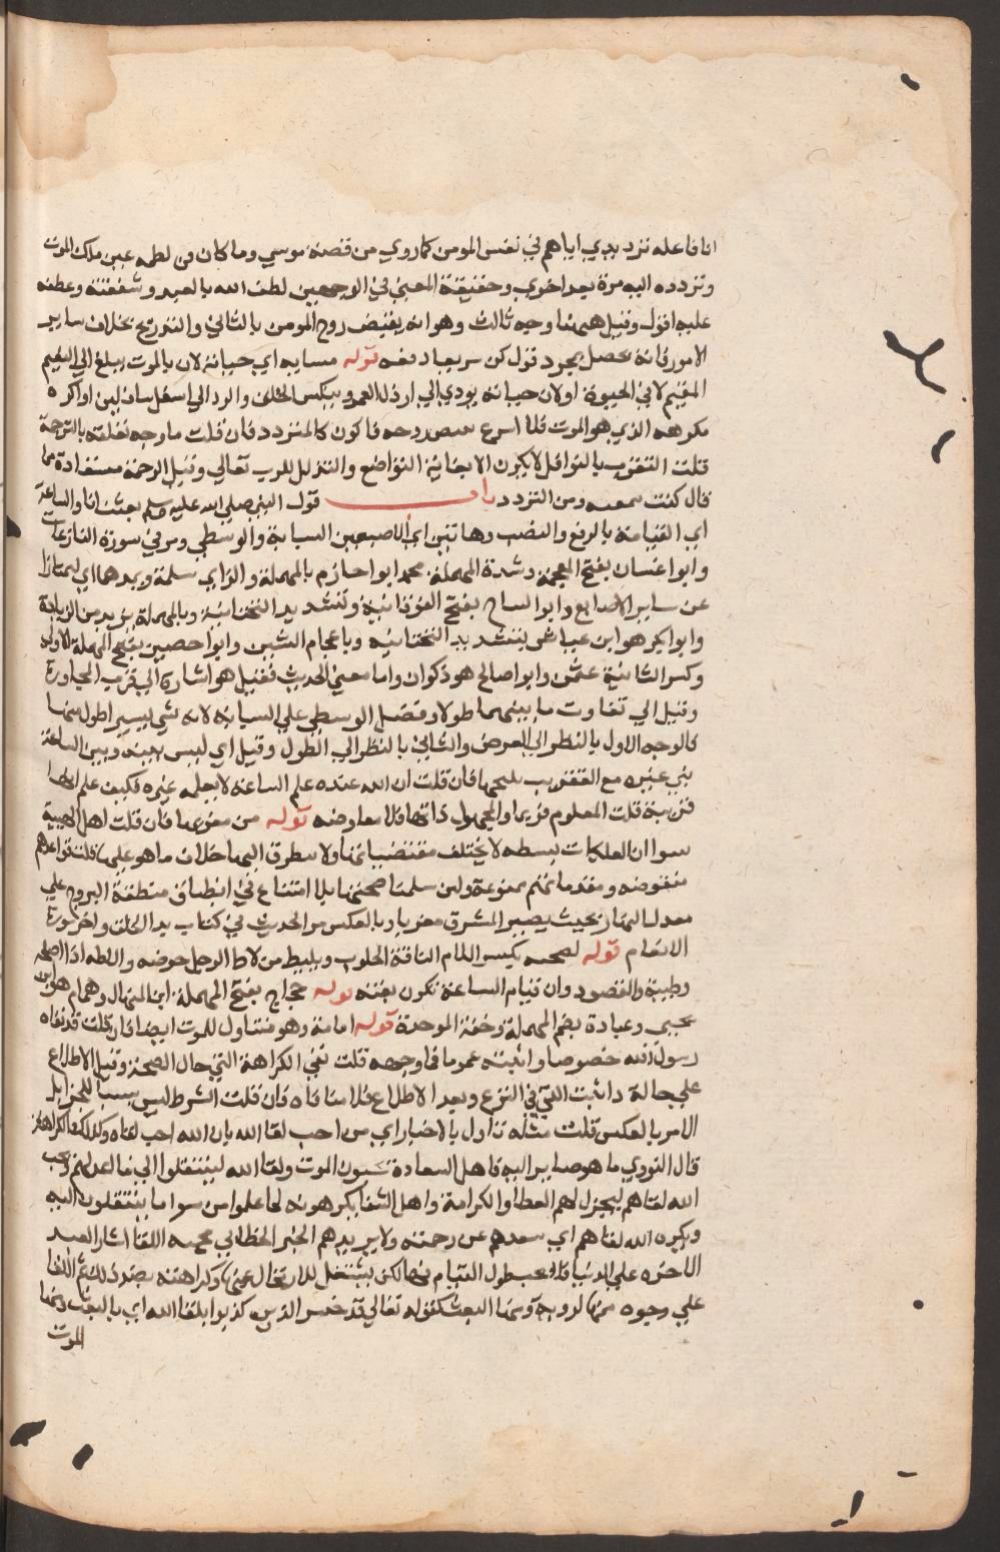 انا فاعله ترديدي اياهم في نفس المومن كما روي من قصة موسي وما كان من لطمه عين ملك الموت
وتردده اليه مرة بعد اخري وحقيقة المعني في الوجهين لطف الله بالعبد وشفقته وعطفه
عليه اقول وقيل هيهنا وجه ثالث وهو انه يقبض روح المومن بالتاني والتدريج بخلاف ساير
الامور فانه يحصل بمجرد قول كن سريعا دفعه قوله مسايه اي حياته لان بالموت يبلغ الي النعيم
المقيم لا في الحيوة او لان حياته يودي الي ارذل العمر وبنكس الخلق والرد الي اسفل سافلين او اكره
مكروهه الذي هو الموت فلا اسرع بقبض روحه فاكون كالمتردد فان قلت ما وجه تعلقه بالترجمة
قلت التقرب بالنوافل لا يكون الا بغاية التواضع والتذلل للرب تعالي وقيل الرحمة مستفادة مما
قال كنت سمعه ومن التردد باب قول النبي صلي الله عليه وسلم بعثت انا والساعة
اي القيامة بالرفع والنصب وهاتين اي الاصبعين السبابة والوسطي ومر في سورة النازعات
وابو غسان بفتح المعجمة وشدة المهملة محمد ابو حازم بالمهملة والزاي سلمة ويمدهما اي ليمتازا
عن ساير الاصابع وابو التياح بفتح الفوقانية وتشديد التحتانية وبالمهملة يزيد من الزيادة
وابو بكر هو ابن عياش بتشديد التحتانيه وباعجام الشين وابو حصين بفتح المهملة الاولي
وكسر الثانية عثمن وابو صالح هو ذكوان واما معني الحديث فقيل هو اشارة الي قرب المجاورة
وقيل الي تفاوت ما بينهما طولا وفضل الوسطي علي السبابة لانه شي يسير اطول منها
كالوجه الاول بالنظر الي العرض والثاني بالنظر الي الطول وقيل اي ليس بينه وبين الساعة
نبي غيره مع التقريب لمجيها فان قلت ان الله عنده علم الساعة لا يعلمه غيره فكيف علم انها
قريبة قلت المعلوم قربها والمجهول ذاتها فلا معارضه قوله من مغربها فان قلت اهل الهيية
سوا ان الفلكيات بسيطه لا يختلف مقتضياتها ولا يتطرق اليها خلاف ما هو عليها قلت قواعدهم
منقوضه ومقدماتهم ممنوعة ولين سلمنا صحتها بلا امتناع في انطباق منطقة البروج علي
معدل النهار بحيث يصير المشرق مغربا وبالعكس مر الحديث في كتاب بدا الخلق واخر سورة
الانعام قوله لقحه بكسر اللام الناقة الحلوب ويليط من لاط الرجل حوضه والاطه اذا اصلحه
وطينه والمقصود وان قيام الساعة تكون بغتة قوله حجاج بفتح المهملة ابن المنهال وهمام هو ابن
يحيي وعبادة بضم المهملة وخفة الموحدة قوله امامه وهو متناول للموت ايضا فان قلت قد نفاه
رسول الله خصوصا واثبته عموما فما وجهه قلت نفي الكراهة التي حال الصحة وقبل الاطلاع
علي حاله واثبت التي في النزع وبعد الاطلاع فلا منافاه فان قلت الشرط ليس سببا للجزا بل
الامر بالعكس قلت مثله تاول بالاخبار اي من احب لقا الله بان الله احب لقاه وكذلك الكراهة
قال النووي ما هو صاير اليه فاهل السعادة يحبون الموت ولقا الله لينتقلوا الي ما اعد لهم ويحب
الله لقاهم ليجزل لهم العطا والكرامة واهل الشقا يكرهونه لما علموا من سوا ما ينتقلون اليه
ويكره الله لقاهم اي يبعدهم عن رحمته ولا يريد بهم الخير الخطابي محبه اللقا ايثار العبد
الاخره علي الدنيا فلا يحب طول القيام فيها لكن يشتغل للارتحال عنها وكراهته بضد ذلك ثم اللقا
علي وجوه منها الروية ومنها البعث كقوله تعالي قد خسر الذين كذبوا بلقا الله اي بالبعث ومنها
الموت